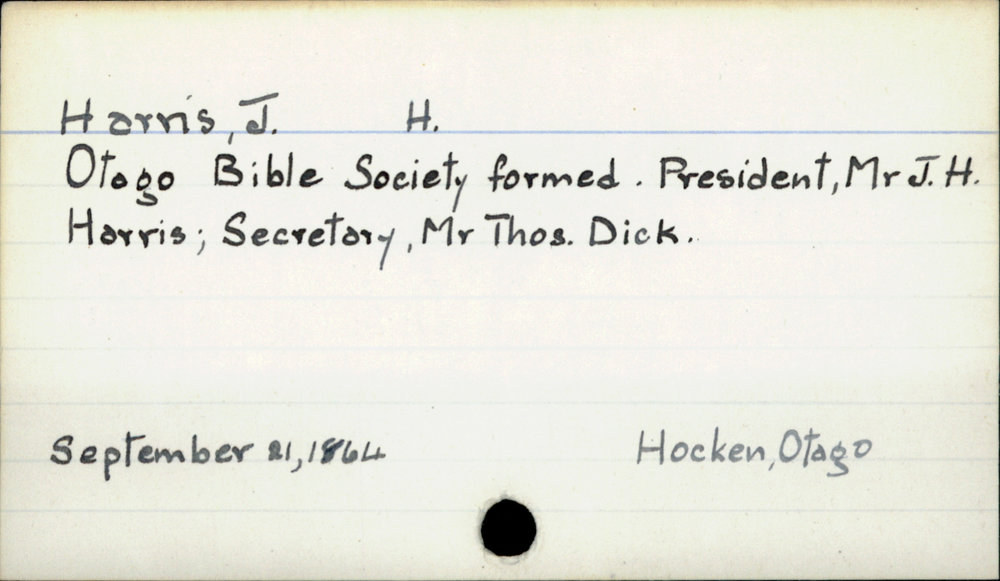 Harris, J. H.
Otago Bible Society formed. President, Mr J. H.
Harris; Secretary, Mr Thos. Dick.
September 21, 1864
Hocken, Otago